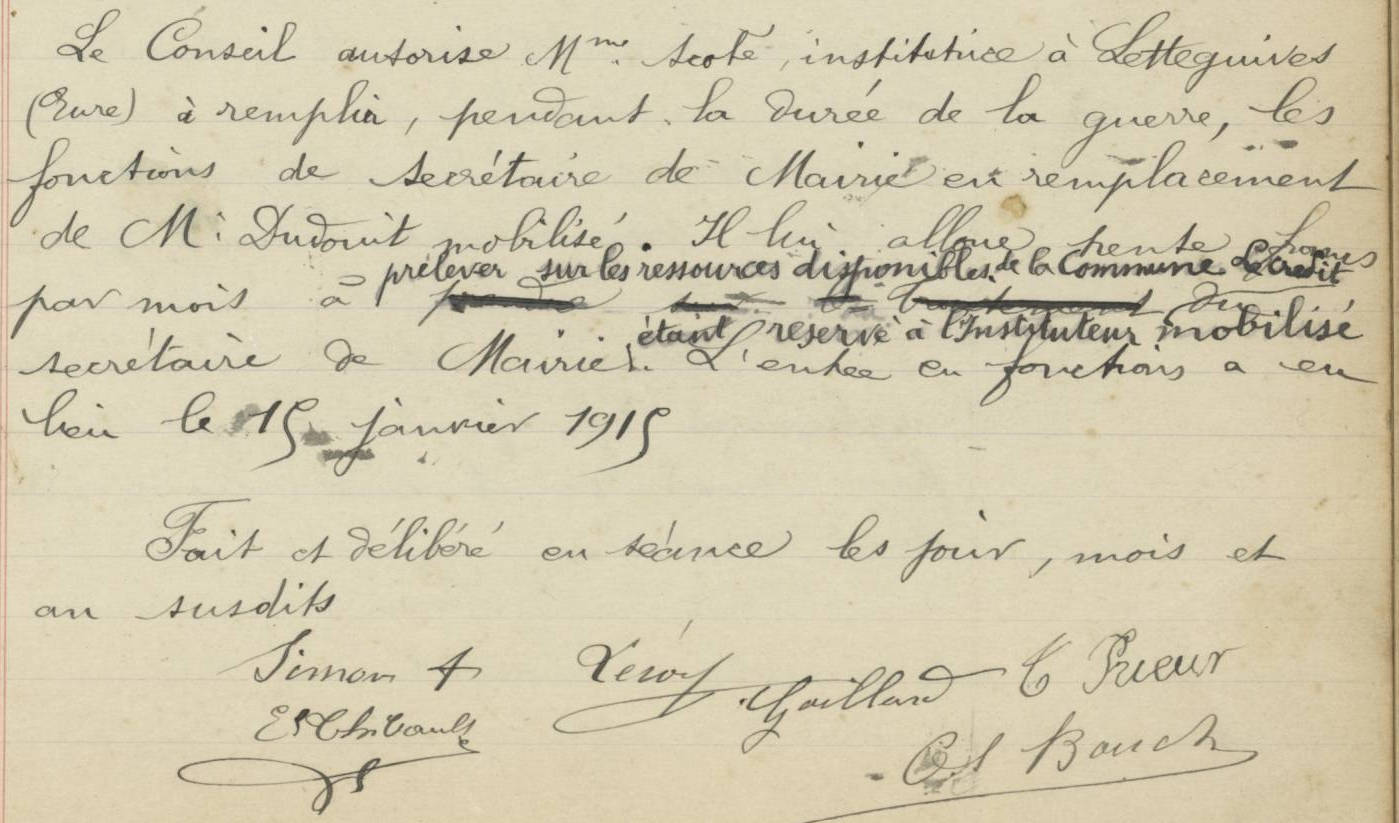 Le Conseil autorise Mme. Scoté, institutrice à Letteguives
(Eure) à remplir, pendant la durée de la guerre, les
fonctions de secrétaire de Mairie en remplacement
de M. Dudouit mobilisé. Il lui alloue trente francs
prélever sur les ressources disponibles de la Commune Le crédit
par mois à prendre sur le traitement du
étant reservé à l'Instituteur mobilisé
secrétaire de Mairie. L'entrée en fonctions a eu
lieu le 15 janvier 1915
Fait et délibéré en séance les jour, mois et
an susdits
Simon Leroy Gaillard C Prieur
E Thibault
Bouch